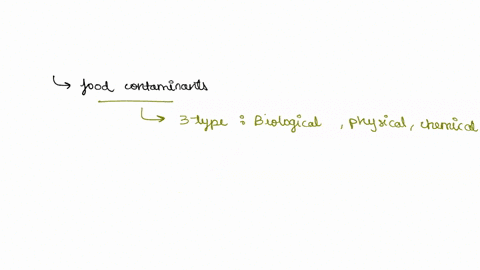 ↳ food contaminants
↳ 3-type : Biological , physical, chemical